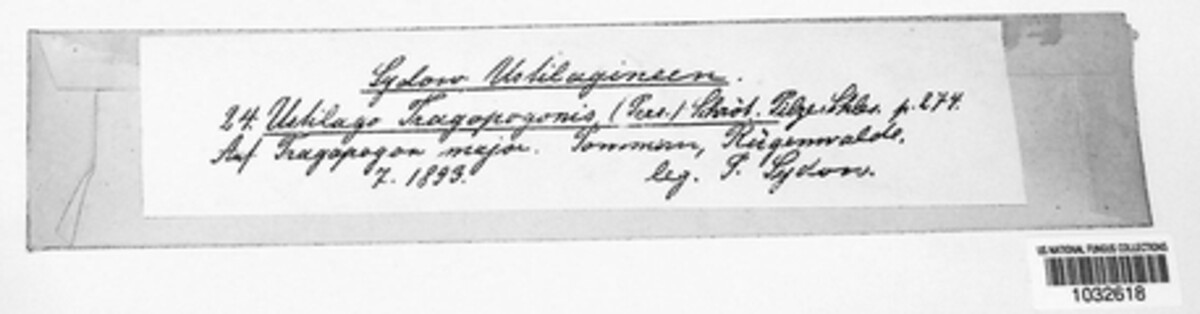 Sydow, Ustilagineen.
24. Ustilago Tragopogonis (Pers.) Schröt. Pilze Schles. p. 274.
Auf Tragopogon major. Pommern, Rügenwalde,
7. 1893. leg. P. Sydow.
US NATIONAL FUNGUS COLLECTIONS
1032618